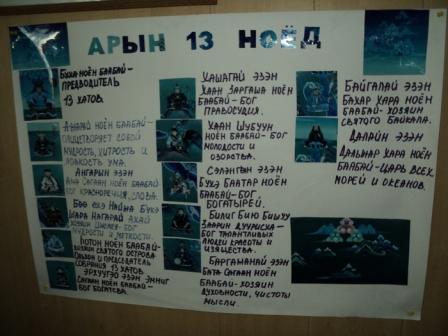 АРЫН 13 НОЁД
БУХА-НОЁН БААБАЙ-
ПРЕДВОДИТЕЛЬ
13 ХАТОВ.
НОЁН БААБАЙ-
ОЛИЦЕТВОРЯЕТ СОБОЙ
МУДРОСТЬ, ХИТРОСТЬ И
ЛОВКОСТЬ УМА.
АНГАРЫН ЭЗЭН
АМА САГААН НОЁН БААБАЙ-
БОГ КРАСНОРЕЧИЯ, СЛОВА.
НАЙМА БУХЭ
ШАРА НАГАРАЙ АХАЙ
ХОЗЯИН БОГ
МУДРОСТИ И МЕТКОСТИ.
НОЁН БААБАЙ-
ХОЗЯИН СВЯТОГО ОСТРОВА
ОЛЬХОН И ПРЕДСЕДАТЕЛЬ
СОБРАНИЯ 13 ХАТОВ.
ЭРХУУГЭЙ ЭЗЭН ЭМНИГ
САГААН НОЁН БААБАЙ-
БОГ БОГАТСТВА.
УАШАГАЙ ЭЗЭН
ХААН ЗАРГАША НОЁН
БААБАЙ-БОГ
ПРАВОСУДИЯ.
ХААН ШУБУУН
НОЁН БААБАЙ- БОГ
МОЛОДОСТИ И
ОЗОРСТВА.
СЭЛЭНГЫН ЭЗЭН
БУХЭ БААТАР НОЁН
БААБАЙ-БОГ
БОГАТЫРЕЙ.
БИЛИГ БИЮ БИШХУ
ЗААРИН ДУУРИСХА-
БОГ ТАЛАНТЛИВЫХ
ЛЮДЕЙ КРАСОТЫ И
ИЗЯЩЕСТВА.
БАРГАЖАНАЙ ЭЗЭН
БАТА САГААН НОЁН
БААБАЙ-ХОЗЯИН
ДУХОВНОСТИ, ЧИСТОТЫ
МЫСЛИ.
БАЙГАЛАЙ ЭЗЭН
БАХАР ХАРА НОЁН
БААБАЙ-ХОЗЯИН
СВЯТОГО БАЙКАЛА.
ДАЛАЙН ЭЗЭН
ДАЛЬМАР ХАРА НОЁН
БААБАЙ-ЦАРЬ ВСЕХ
МОРЕЙ И ОКЕАНОВ.